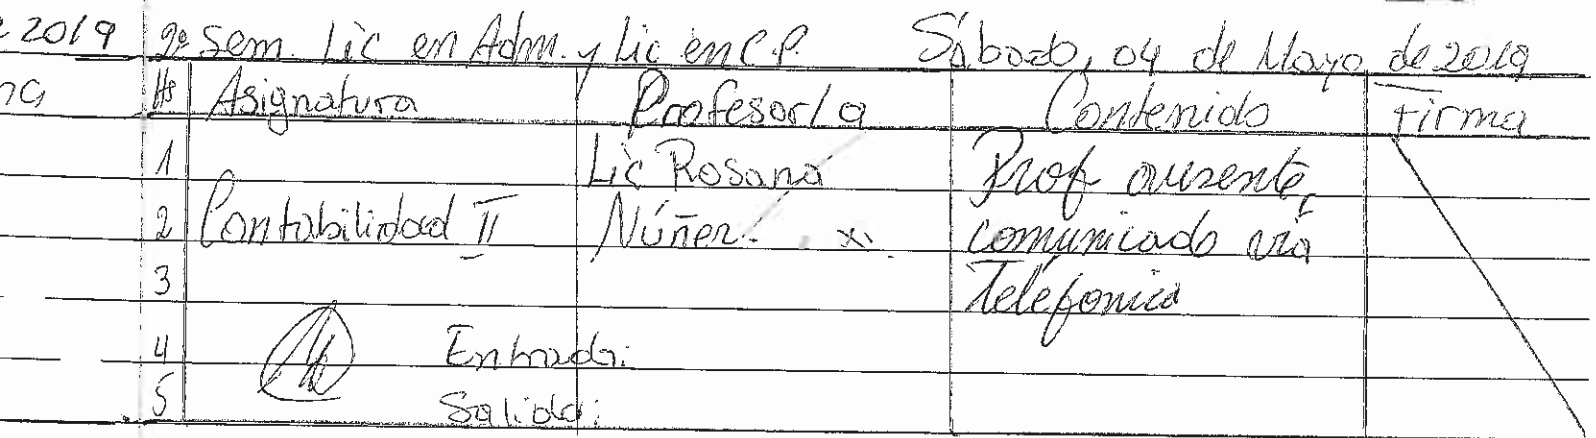 2019
2º Sem. Lic en Adm. y Lic en C.P. Sábado, 04 de Mayo de 2019
Hs Asignatura Profesor/a Contenido Firma
1 Lic Rosana Prof ausente,
2 Contabilidad II Núñez. comunicado vía
3 Telefonica
4 Entrada:
5 Salida: